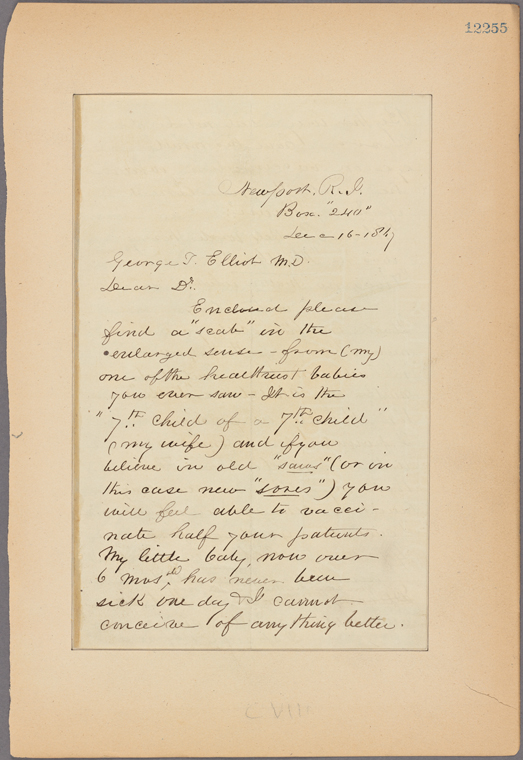 12255
Newport. R.I.
Box. "240"
Dec 16-1867
George T. Elliot M.D.
Dear Dr.
Enclosed please
find a "scab" in the
enlarged sense - from (my)
one of the healthiest babies
you ever saw - It is the
"7th child of a 7th child"
(my wife) and if you
believe in old "saws" (or in
this case new "sores") you
will feel able to vacci-
nate half your patients.
My little baby, now over
6 mos, has never been
sick one day & I cannot
conceive of anything better.
C VIII